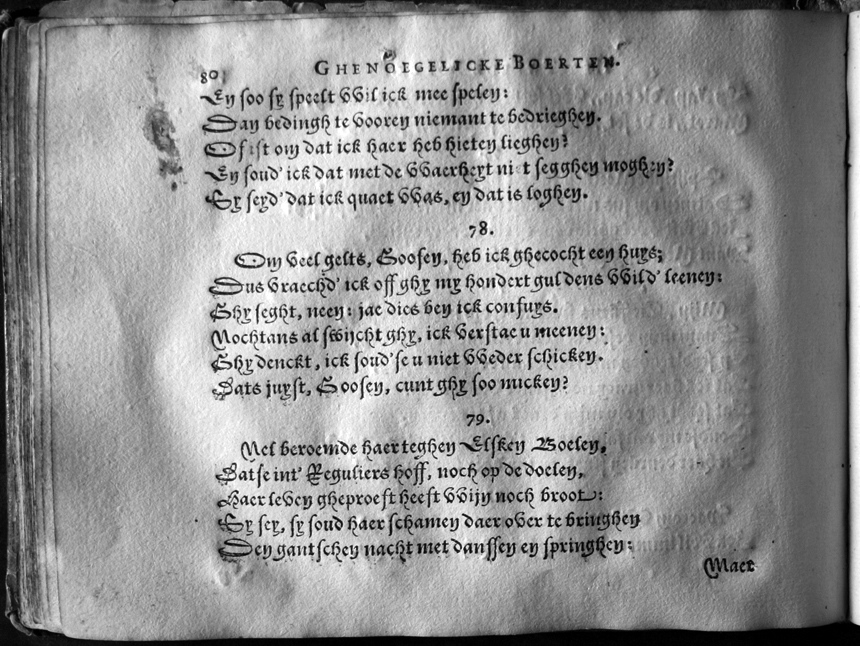 80 GHENOEGELICKE BOERTEN.
En soo sy speelt VVil ick mee spelen:
Dan bedingh te vooren niemant te bedrieghen.
Of ist om dat ick haer heb hieten lieghen?
En soud' ick dat met de VVaerheyt ni t segghen moghen?
Sy seyd' dat ick quaet VVas, en dat is loghen.
78.
Om veel gelts, Goosen, heb ick ghecocht een huys;
Dus vraechd' ick off ghy my hondert guldens VVild' leenen:
Ghy seght, neen: jae dies ben ick confuys.
Nochtans al swijcht ghy, ick verstae u meenen:
Ghy denckt, ick soud'se u niet VVeder schicken.
Dats juyst, Goosen, cunt ghy soo micken?
79.
Nel beroemde haer teghen Elsken Boelen,
Datse int' Reguliers hoff, noch op de doelen,
Haer leven gheproeft heeft VVijn noch broot:
Sy sey, sy soud haer schamen daer over te bringhen
Den gantschen nacht met danssen en springhen:
Maer